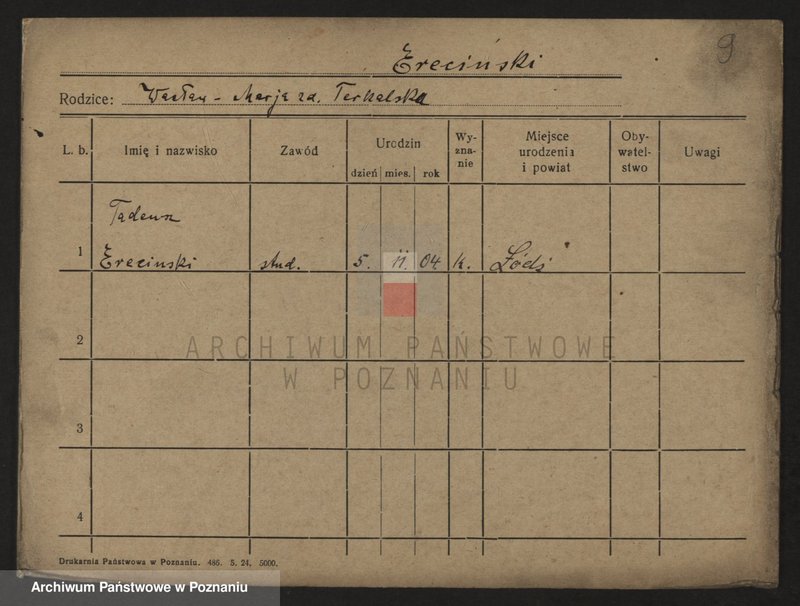 9
Ereciński
Rodzice: Wacław – Marja zd. Terkalska
L. b. Imię i nazwisko Zawód Urodzin dzień mies. rok Wy-zna-nie Miejsce urodzenia i powiat Oby-watel-stwo Uwagi
Tadeusz
1 Ereciński stud. 5. 11. 04. k. Łódź
2
ARCHIWUM PAŃSTWOWE
W POZNANIU
3
4
Drukarnia Państwowa w Poznaniu. 486. 5. 24. 5000.
Archiwum Państwowe w Poznaniu